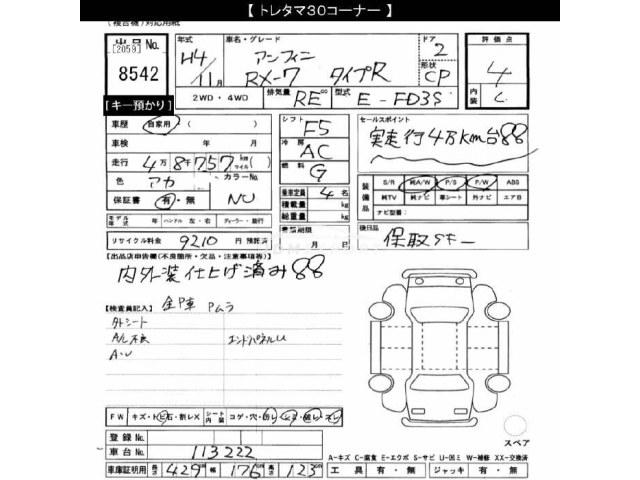 【 トレタマ30コーナー 】
(複合機)対応用紙
出品No.
[2059]
8542
【キー預かり】
年式 H4/11月
車名・グレード アンフィニ RX-7 タイプR
ドア 2
形状 CP
評価点 4
内装 C
2WD・4WD 排気量 RE cc 型式 E-FD3S
車歴 自家用 ( )
車検 年 月
走行 4万8千757km マイル ( )
色 アカ カラーNo. NU
保証書 有・無
モデル年式 年 ハンドル 左・右 ディーラー・並行
リサイクル料金 9210円 預託済
シフト F5
冷房 AC
燃料 G
乗車定員 4名
積載量 kg
総重量 kg
月 日
セールスポイント
実走行4万km台
装備品 S/R 純A/W P/S P/W ABS
純TV 純ナビ 革シート 外ナビ エアB
ナビ型番:
後日品
保取スキー
【出品店申告欄(不良箇所・欠品・注意事項等)】
内外装仕上げ済み
【検査員記入】 Pムラ
外シート
A/C不良
エンドパネルU
A・U
FW キズ・トビ石・割レX シート内装 コゲ・穴・切レ
登録No.
車台No. 113222
車庫証明用 長さ 429cm 幅 176cm 高さ 123cm
スペア
A-キズ C-腐食 E-エクボ S-サビ U-凹ミ W-補修 XX-交換済
工具 有・無 ジャッキ 有・無